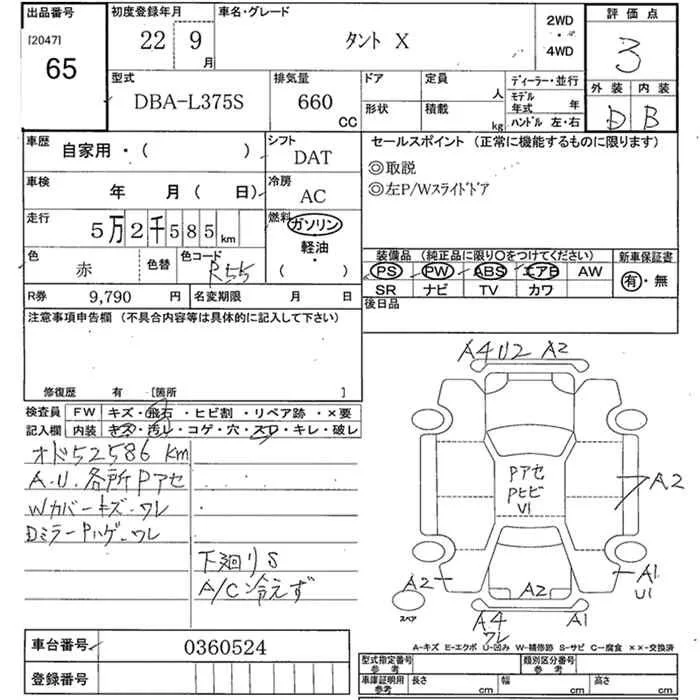 出品番号
[2047]
65
初度登録年月
22 9
月
車名・グレード
タント X
2WD
・
4WD
評価点
3
外装 内装
D B
型式
DBA-L375S
排気量
660
CC
ドア
形状
定員
人
積載
kg
ディーラー・並行
モデル
年式 年
ハンドル 左・右
車歴
自家用・( )
シフト
DAT
セールスポイント (正常に機能するものに限ります)
◎取説
◎左P/Wスライドドア
車検
年 月( 日)
冷房
AC
走行
5万2千585km
燃料
ガソリン
軽油・
( )
色
赤
色替
色コード
R55
装備品 (純正品に限り○をつけてください)
PS PW ABS エアB AW
SR ナビ TV カワ
新車保証書
有・無
R券 9,790 円
名変期限 月 日
後日品
注意事項申告欄 (不具合内容等は具体的に記入して下さい)
修復歴 有 [箇所 ]
検査員 FW キズ・飛石・ヒビ割・リペア跡・×要
記入欄 内装 キズ・汚レ・コゲ・穴・スレ・キレ・破レ
オド52586 Km
A.U.各所Pアセ
Wカバーキズ・ワレ
DミラーPハゲ・ワレ
下廻りS
A/C冷えず
A4U2 A2
Pアセ
Pヒビ
V1
A2
A2
A2
A1
U1
スペア
A4
ワレ
A1
A-キズ E-エクボ U-凹み W-補修跡 S-サビ C-腐食 ××-交換済
車台番号 0360524
登録番号
型式指定番号
参考
類別区分番号
参考
車庫証明用
参考
長さ cm 幅 cm 高さ cm